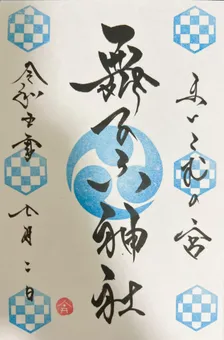 まいこむの宮
舞子六神社
令和五年
七月二日